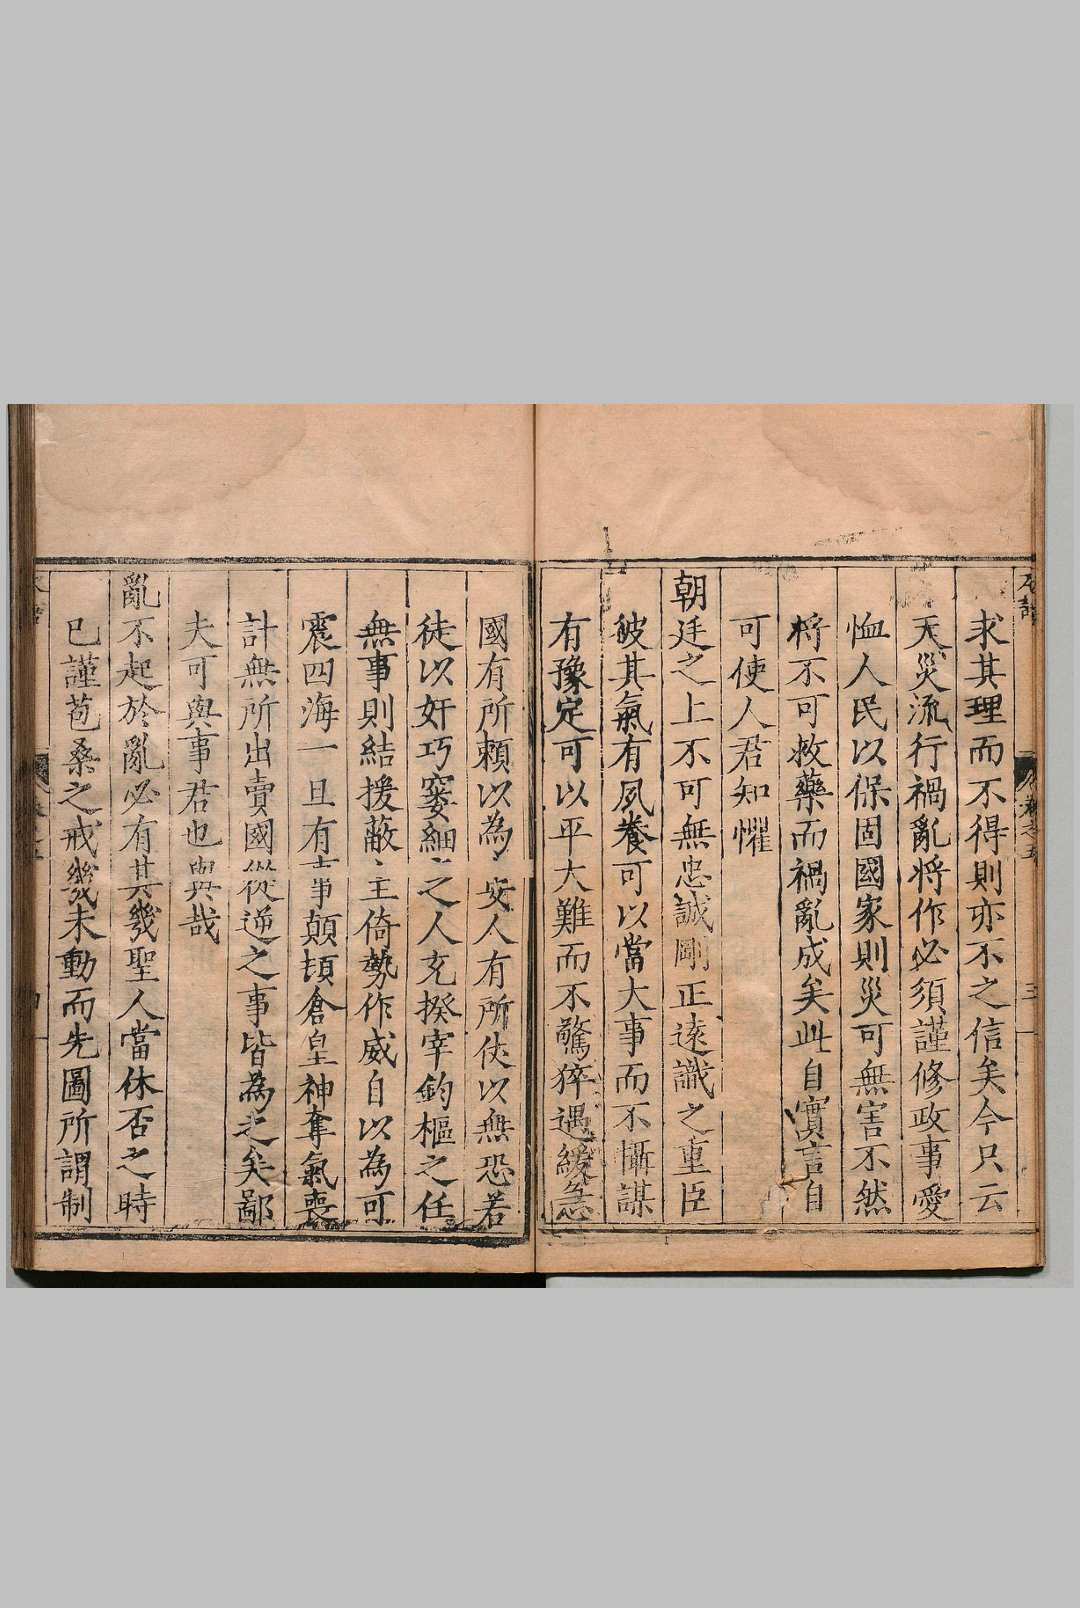 求其理而不得則亦不之信矣今只云
天災流行禍亂將作必須謹修政事愛
恤人民以保固國家則災可無害不然
將不可救藥而禍亂成矣此自實言自
可使人君知懼
朝廷之上不可無忠誠剛正遠識之重臣
彼其氣有夙養可以當大事而不懾謀
有豫定可以平大難而不驚猝遇緩急
國有所賴以為安人有所恃以無恐若
徒以奸巧窶細之人充揆宰鈞樞之任
無事則結援蔽主倚勢作威自以為可
震四海一旦有事顛頓倉皇神奪氣喪
計無所出賣國從逆之事皆為之矣鄙
夫可與事君也與哉
亂不起於亂必有其幾聖人當休否之時
已謹苞桑之戒幾未動而先圖所謂制